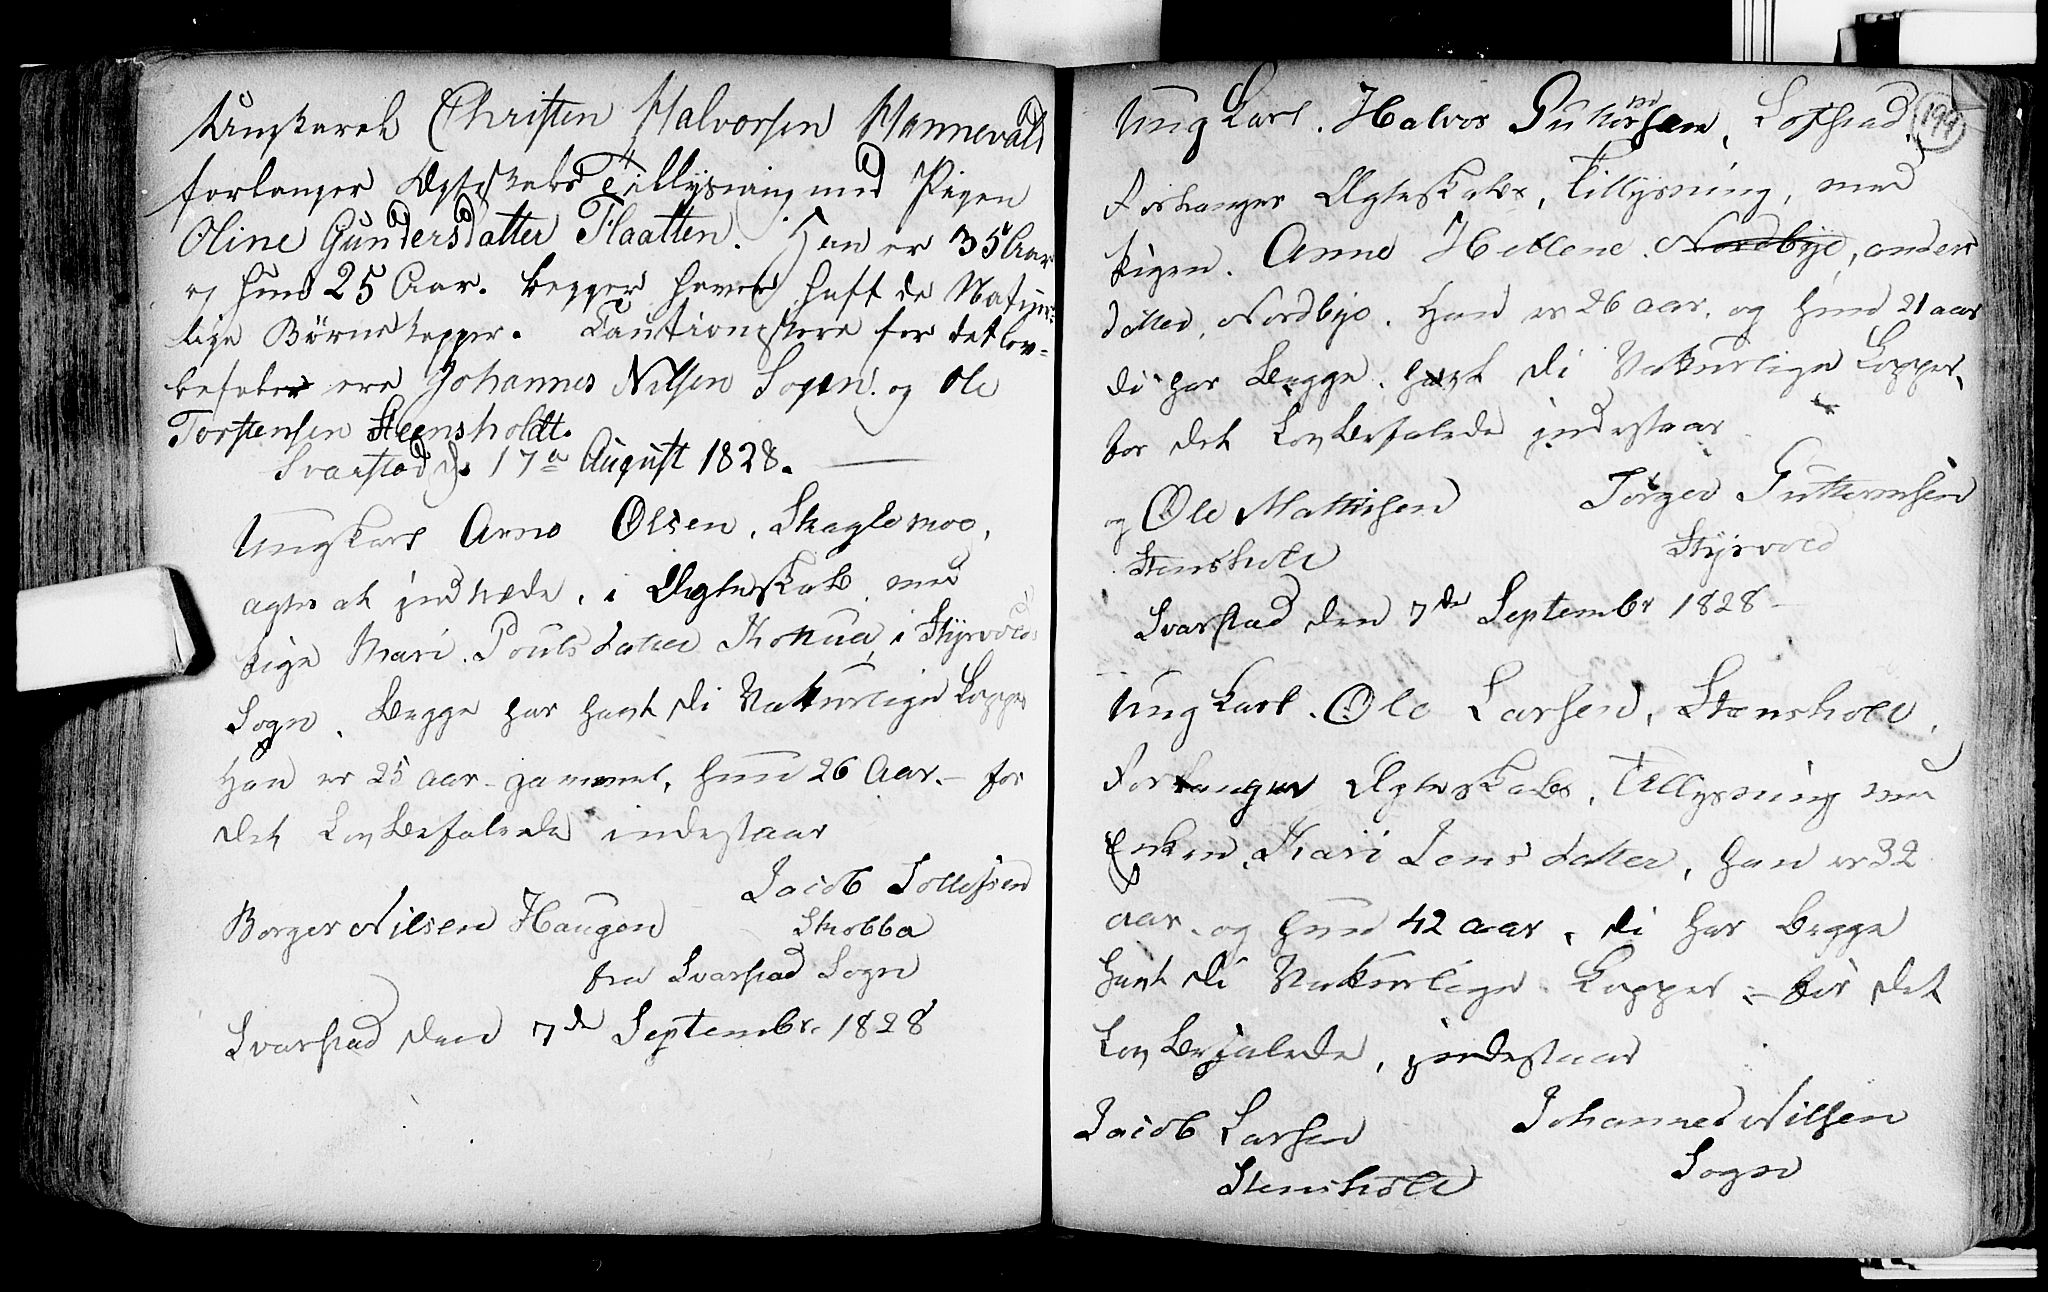 Ungkarl Christen Halvorsen Hannevold
forlanger Ægteskabs Tillysning med Pigen
Oline Gundersdatter Flaatten. Han er 35 Aar
og hun 25 Aar. begger haver haft de Natur-
lige Børnekopper. Cautionister for det lov-
befalede ere Johannes Nilsen Sogn og Ole
Torstensen Steensholdt.
Svarstad d. 17de August 1828.
Ungkarl Arne Olsen, Skaglemoe,
agter at jndtræde, i Ægteskab med
Pige Mari Poulsdatter i Styrvold
Sogn. Begge har havt di Naturlige Kopper
Han er 25 aar gammel, hun 26 Aar. for
det Lov Befalede indestaar
Jacob Tollefsen
Borger Nilsen Haugen Skobba
fra Svarstad Sogn
Svarstad den 7de Septembr. 1828
199
Ung Karl. Halvor Guttormsen,
Forlanger Ægteskabs, Tillysning, med
Pigen. Anne Hellene Nordbye, anders
datter, Nordbye. Han er 26 aar, og hun 21 aar
di har Begge havt di Naturlige Kopper,
for det Lov Befalede jndestaar
og Ole Mathisen Torger Guttormsen
Stensholt Styrvold
Svarstad den 7de Septembr 1828
Ung Karl. Ole Larsen, Stensholt,
Forlanger Ægteskabs, Tillysning med
Enken, Kari Jens datter, han er 32
aar, og hun 42 aar, di har begge
havt di Naturlige Kopper - for det
Lov Befalede, jndestaar
Jacob Larsen Johannes Nilsen
Stensholt Sogn